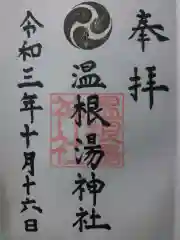 奉拝
温根湯神社
令和三年十月十六日